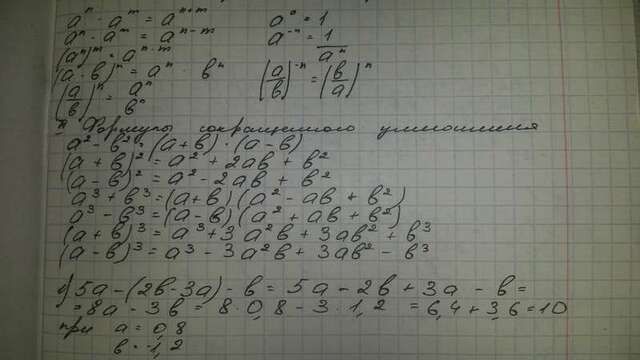 aⁿ · aᵐ = aⁿ⁺ᵐ a⁰ = 1
aⁿ · aᵐ = aⁿ⁻ᵐ a⁻ⁿ = 1/aⁿ
(aⁿ)ᵐ = aⁿ·ᵐ
(a · b)ⁿ = aⁿ · bⁿ (a/b)⁻ⁿ = (b/a)ⁿ
(a/b)ⁿ = aⁿ/bⁿ
Формулы сокращенного умножения
a² - b² = (a+b) · (a-b)
(a + b)² = a² + 2ab + b²
(a - b)² = a² - 2ab + b²
a³ + b³ = (a+b) (a² - ab + b²)
a³ - b³ = (a-b) (a² + ab + b²)
(a + b)³ = a³ + 3a²b + 3ab² + b³
(a - b)³ = a³ - 3a²b + 3ab² - b³
5a - (2b - 3a) - b = 5a - 2b + 3a - b =
= 8a - 3b = 8 · 0,8 - 3 · 1,2 = 6,4 + 3,6 = 10
при a = 0,8
b = -1,2